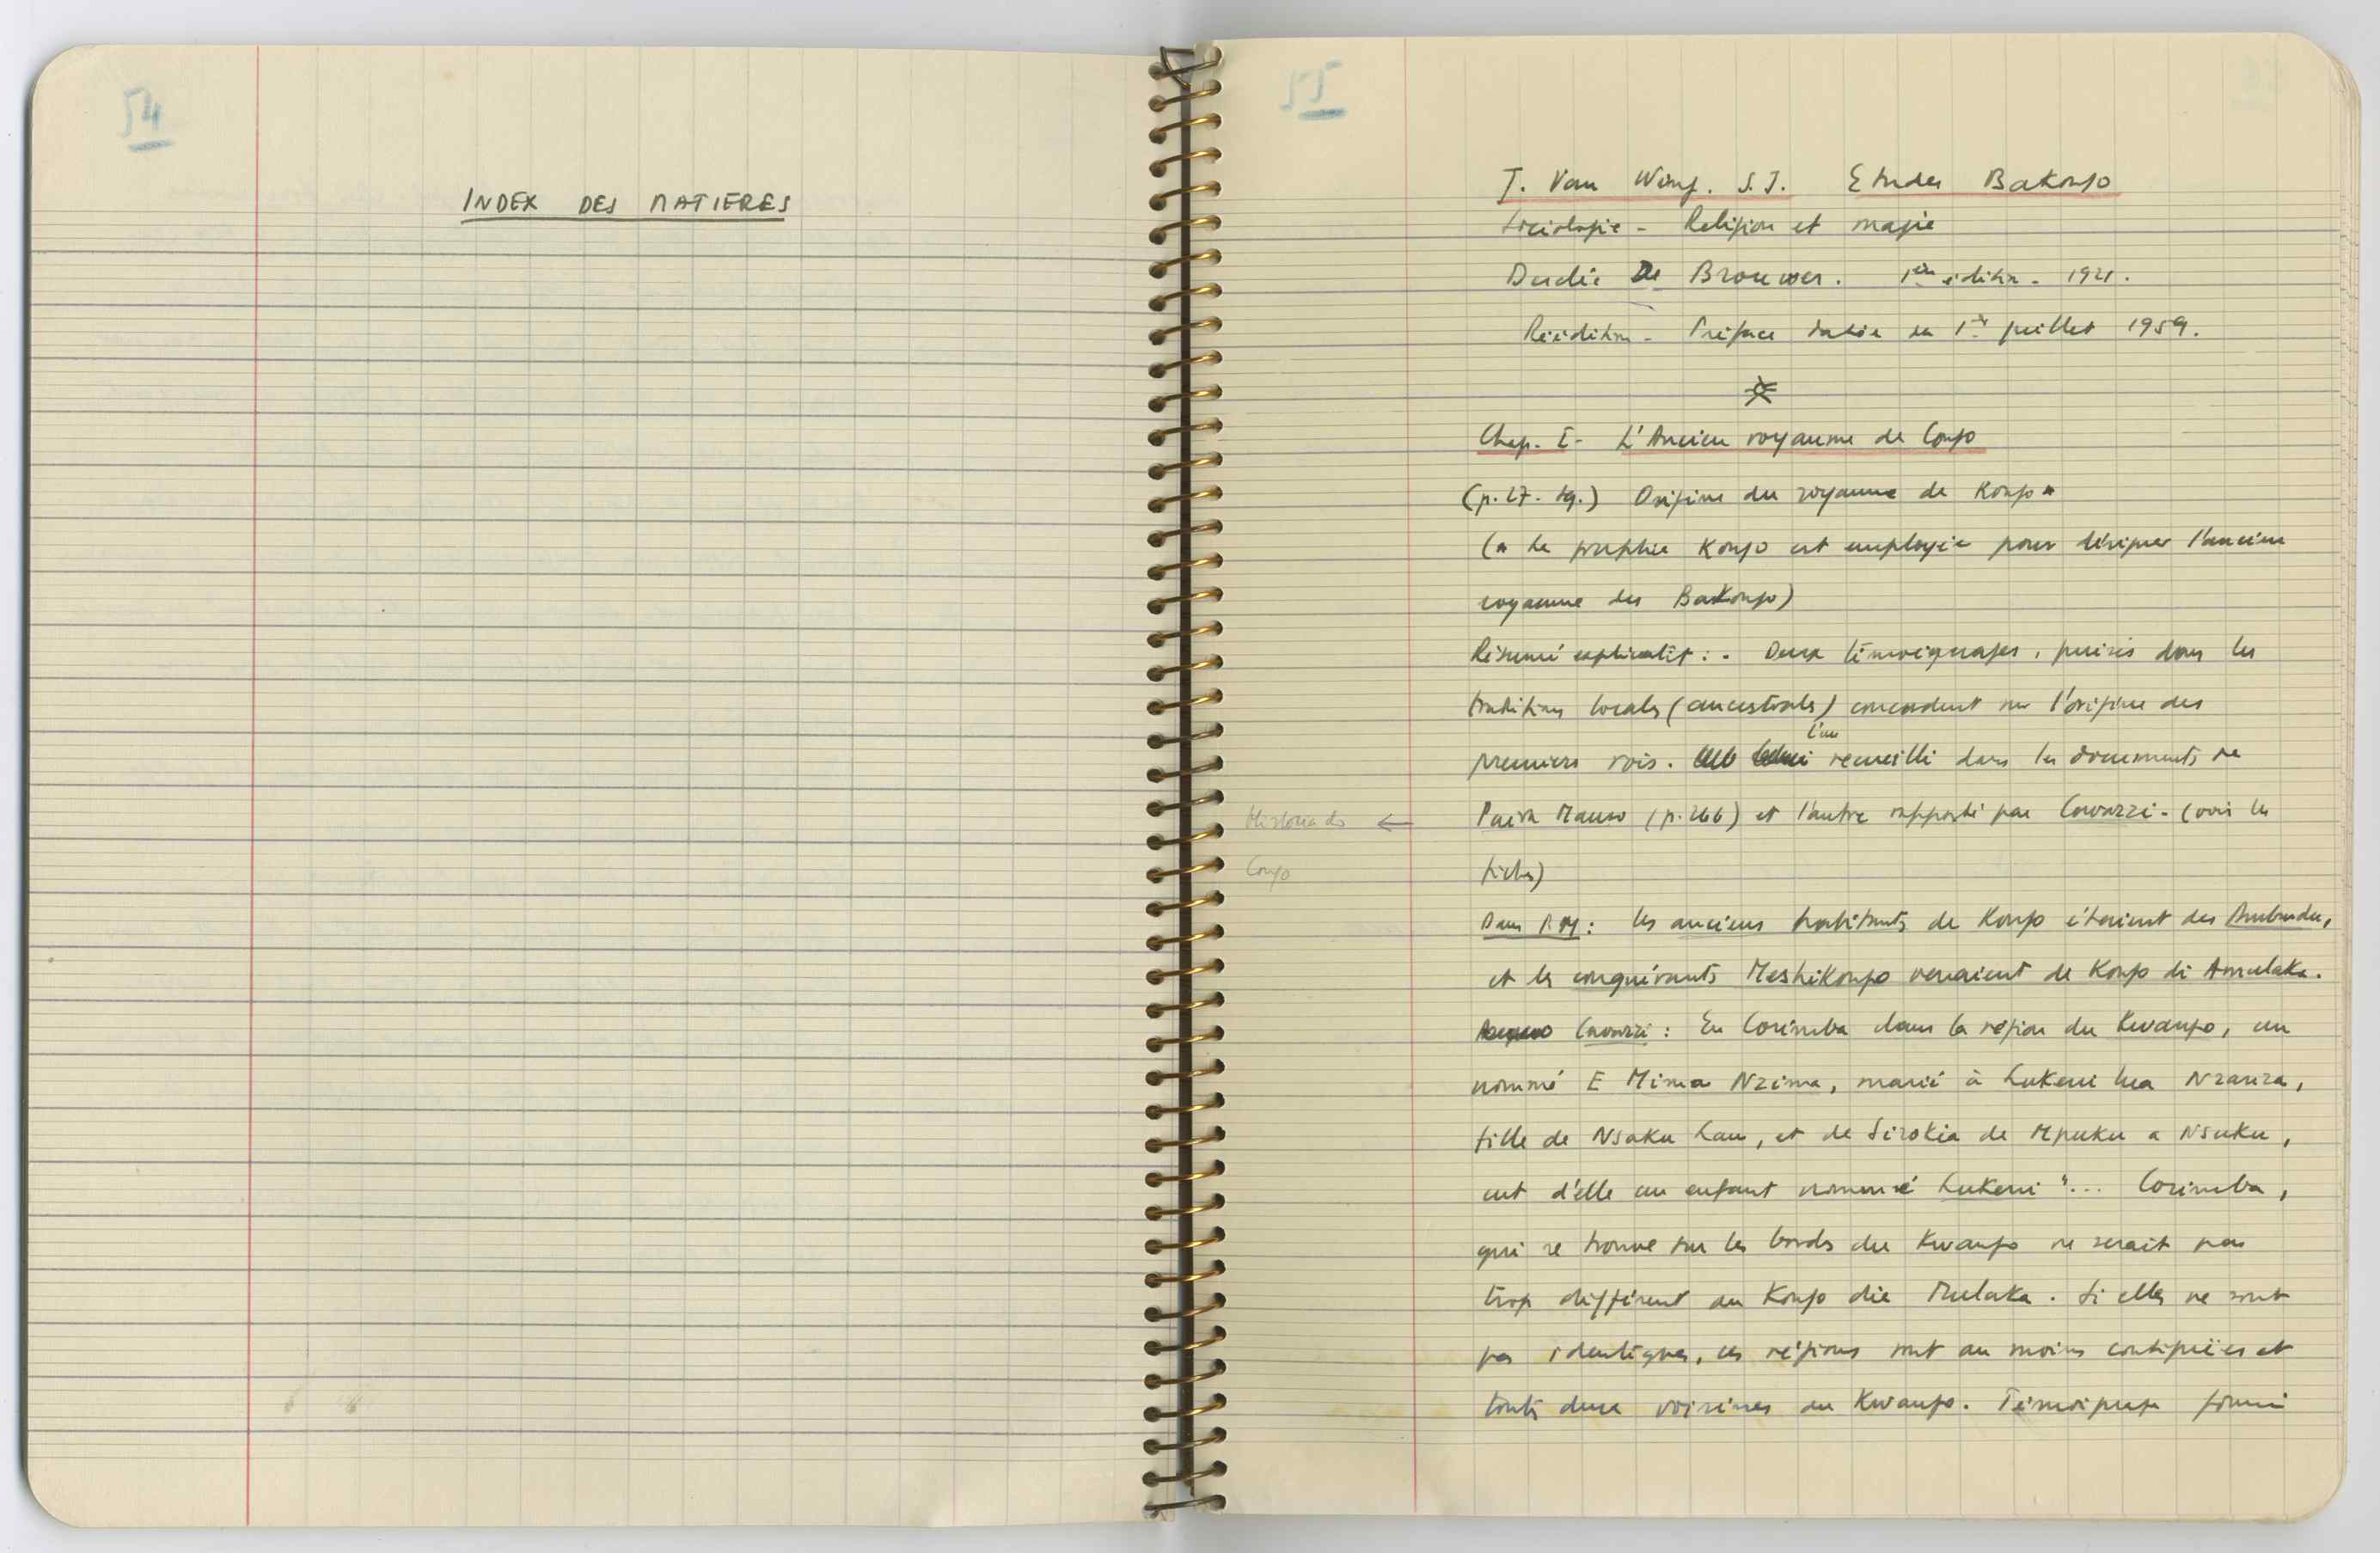 54
INDEX DES MATIERES
55
J. Van Wing. S.J. Etudes Bakongo
Sociologie - Religion et magie
Desclée De Brouwer. 1ère édition - 1921.
Réédition - Préface datée du 1er juillet 1959.
Chap. I - L'Ancien royaume de Congo
(p. 17 - sq.) Origine du royaume de Kongo *
(* La graphie Kongo est employée pour désigner l'ancien
royaume des Bakongo)
Résumé explicatif : - Deux témoignages, puisés dans les
traditions locales (ancestrales) concordent sur l'origine des
premiers rois. l'un recueilli dans les documents de
Historia do ← Paiva Manso (p. 266) et l'autre rapporté par Cavazzi - (voir les
Congo fiches)
Dans P.M : les anciens habitants de Kongo étaient des Ambundu,
et les conquérants Meshikongo venaient de Kongo di Amulaka.
Cavazzi : En Corimba dans la région du Kwango, un
nommé E Mima Nzima, marié à Lukeni lua Nzanza,
fille de Nsaku Lau, et de Sirokia de Mpuku a Nsuku,
eut d'elle un enfant nommé Lukeni "... Corimba,
qui se trouve sur les bords du Kwango ne serait pas
trop différent du Kongo dia Mulaka. Si elles ne sont
pas identiques, ces régions sont au moins contiguëes et
toutes deux voisines du Kwango. Témoignage fourni